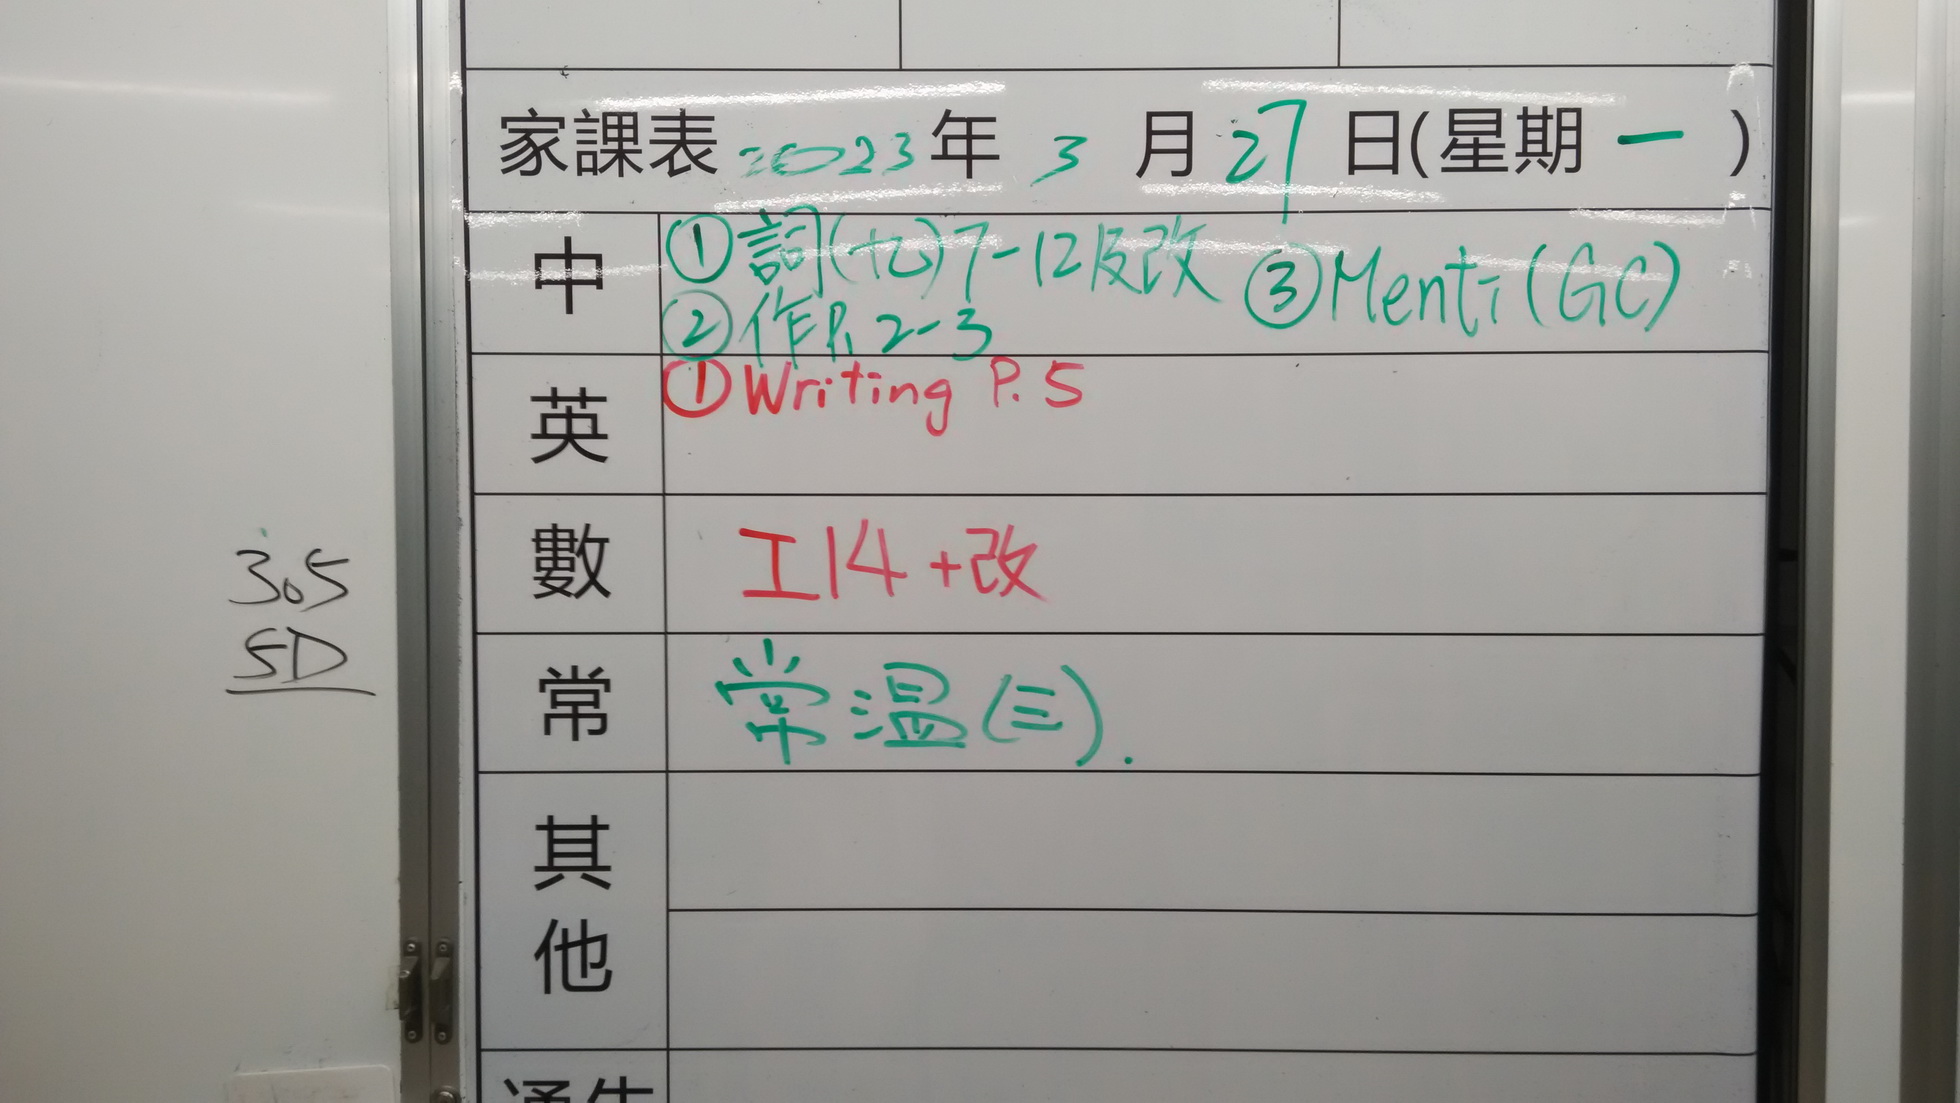 家課表 2023 年 3 月 27 日(星期 一 )
中 ①詞(十七)7-12及改 ③Menti(GC)
②作P. 2-3
英 ①Writing P. 5
數 工14+改
常 常溫(三).
其他
通告
3.5
5D